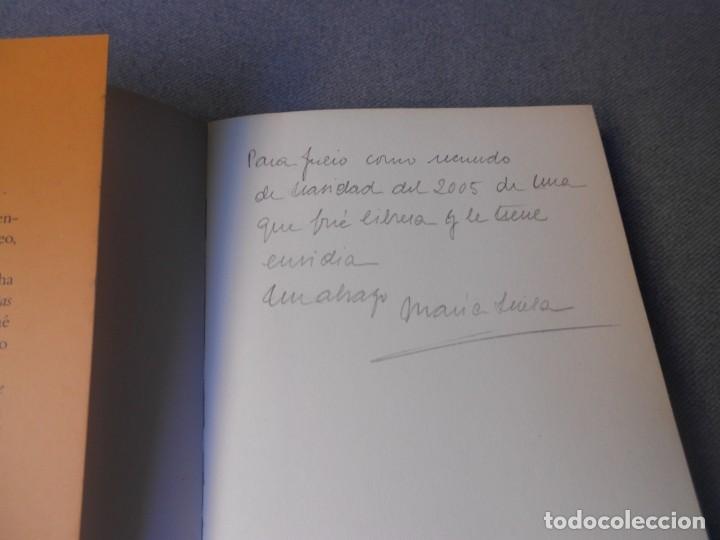 en-
eo,
ha
as
né
o
e
Para Julio como recuerdo
de Navidad del 2005 de una
que fué librera y le tiene
envidia
Un abrazo María Luisa
todocoleccion